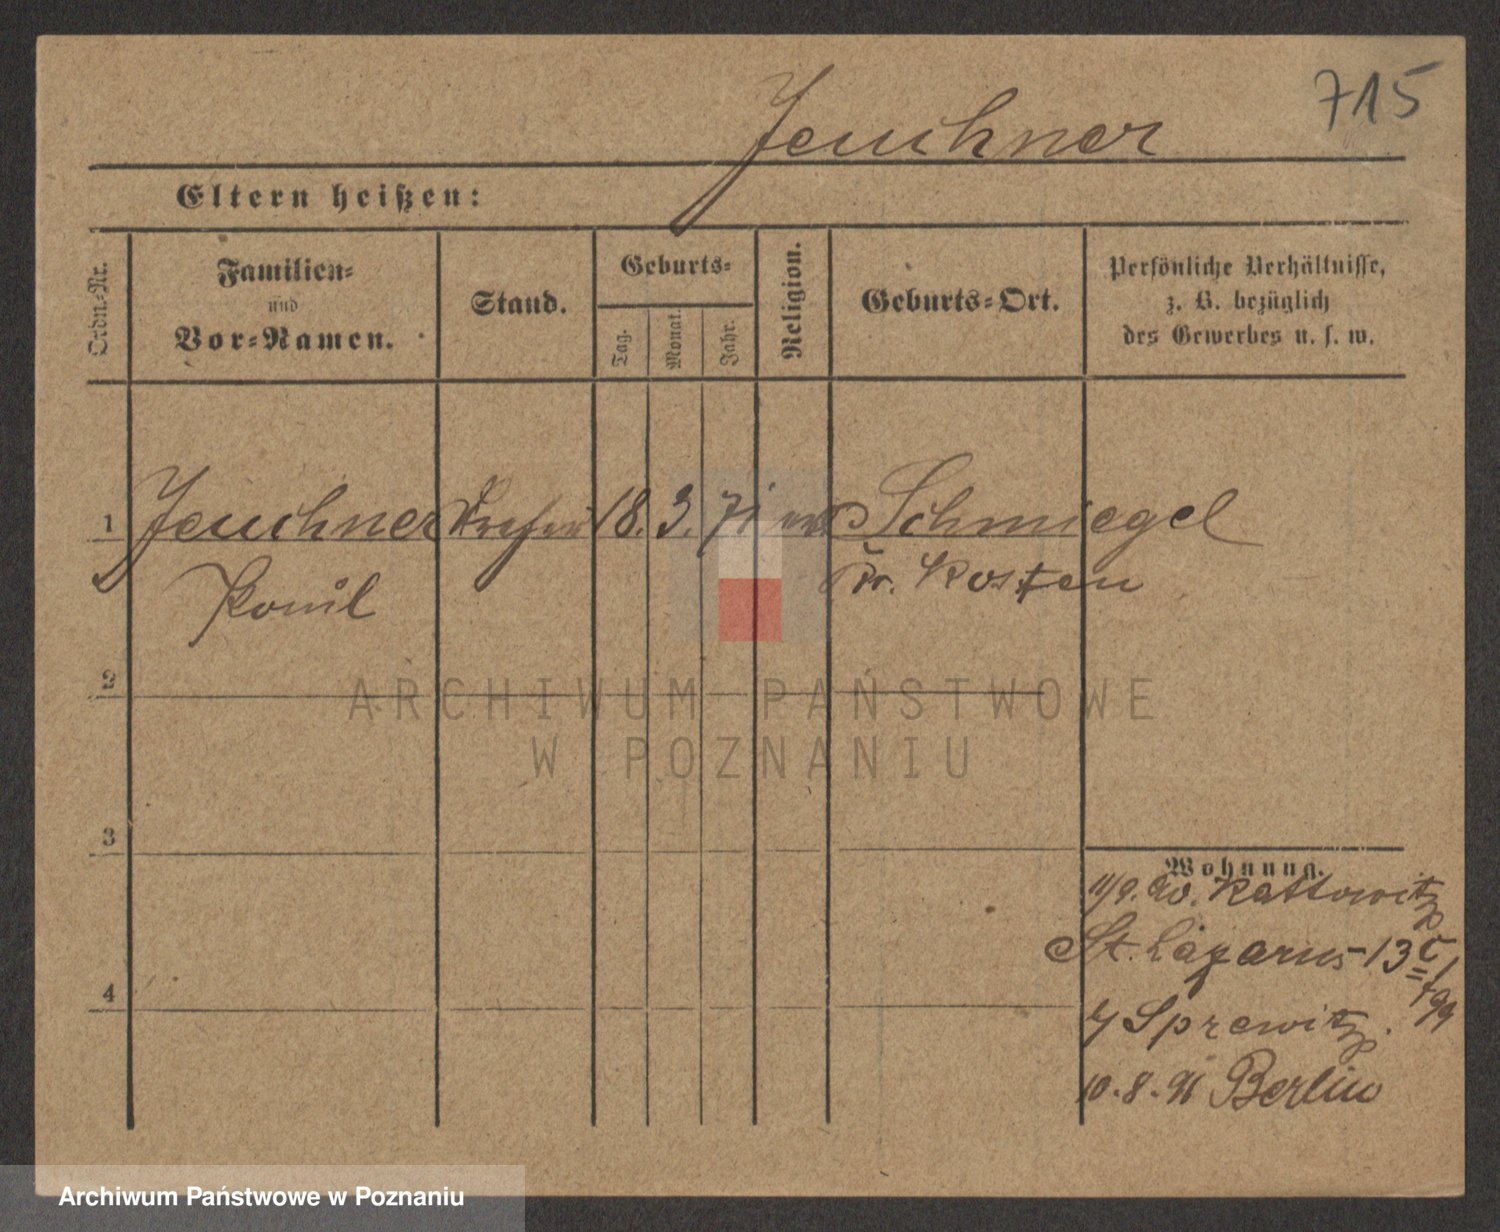 715
Jeuchner
Eltern heißen:
Ordn.-Nr.
Familien-
und
Vor-Namen.
Stand.
Geburts-
Tag.
Monat.
Jahr.
Religion.
Geburts-Ort.
Persönliche Verhältnisse,
z. B. bezüglich
des Gewerbes u. s. w.
1 Jeuchner 18. 3. 71 Schmiegel
Kr. Kosten
2
ARCHIWUM PAŃSTWOWE
W POZNANIU
3
Wohnung.
11/9. 90. Kattowitz
St. Lazarus 13
Sprewitz.
10. 8. 91 Berlin
4
Archiwum Państwowe w Poznaniu